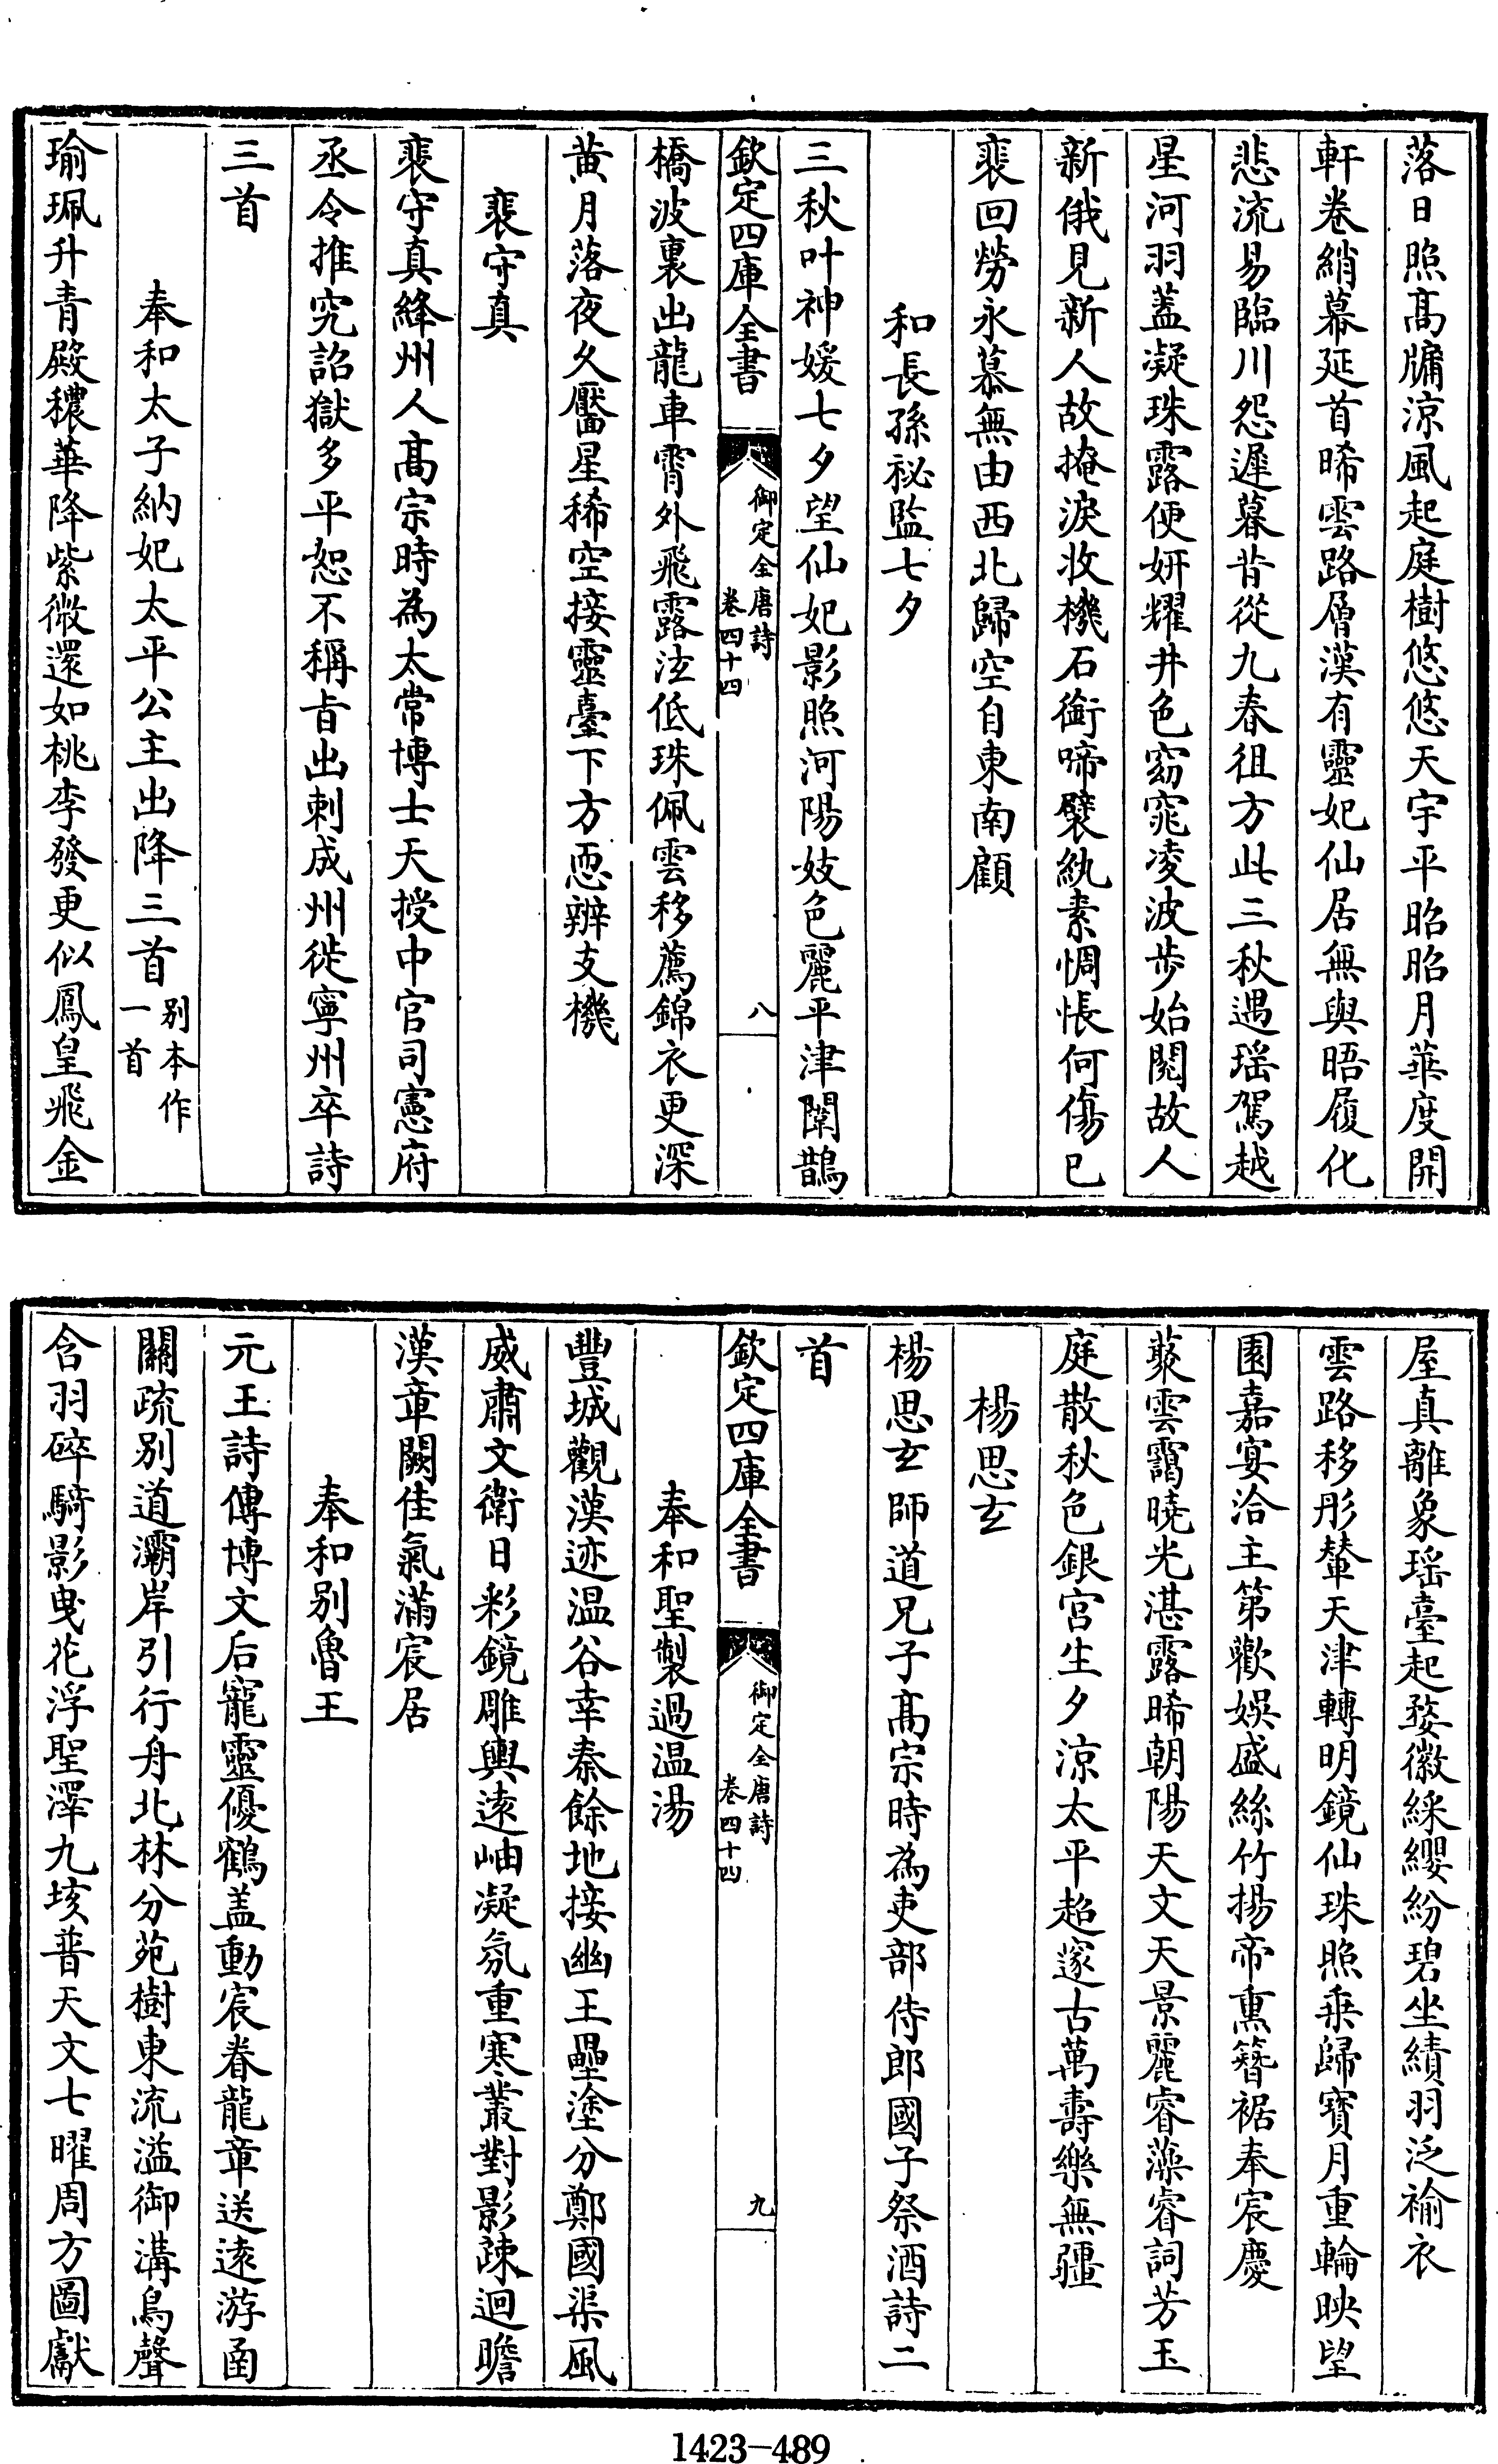 落日照髙牗涼風起庭樹悠悠天宇平昭昭月華度開
軒卷綃幕延首晞雲路層漢有靈妃仙居無與晤履化
悲流易臨川怨遲暮昔從九春徂方此三秋遇瑶駕越
星河羽蓋凝珠露便妍耀井色窈窕凌波步始閲故人
新俄見新人故掩淚收機石銜啼襞紈素惆悵何傷已
裴回勞永慕無由西北歸空自東南顧
和長孫祕監七夕
三秋叶神媛七夕望仙妃影照河陽妓色麗平津闈鵲
欽定四庫全書
御定全唐詩
卷四十四
八
橋波裏出龍車霄外飛露泫低珠佩雲移薦錦衣更深
黄月落夜久靨星稀空接靈臺下方恧辨支機
裴守真
裴守真絳州人髙宗時為太常博士天授中官司憲府
丞令推究詔獄多平恕不稱旨出刺成州徙寧州卒詩
三首
奉和太子納妃太平公主出降三首
别本作
一首
瑜珮升青殿穠華降紫微還如桃李發更似鳳皇飛金
屋真離象瑶臺起婺徽綵纓紛碧坐繢羽泛褕衣
雲路移彤輦天津轉明鏡仙珠照乗歸寳月重輪映望
園嘉宴洽主第歡娱盛絲竹揚帝熏簪裾奉宸慶
藂雲靄曉光湛露晞朝陽天文天景麗睿藻睿詞芳玉
庭散秋色銀宫生夕涼太平超邃古萬壽樂無疆
楊思玄
楊思玄師道兄子髙宗時為吏部侍郎國子祭酒詩二
首
欽定四庫全書
御定全唐詩
卷四十四
九
奉和聖製過温湯
豐城觀漢迹温谷幸秦餘地接幽王壘塗分鄭國渠風
威肅文衛日彩鏡雕輿逺岫凝氛重寒叢對影疎迴瞻
漢章闕佳氣滿宸居
奉和别魯王
元王詩傳博文后寵靈優鶴盖動宸眷龍章送逺游函
關疏别道灞岸引行舟北林分苑樹東流溢御溝鳥聲
含羽碎騎影曳花浮聖澤九垓普天文七曜周方圖獻
1423-489